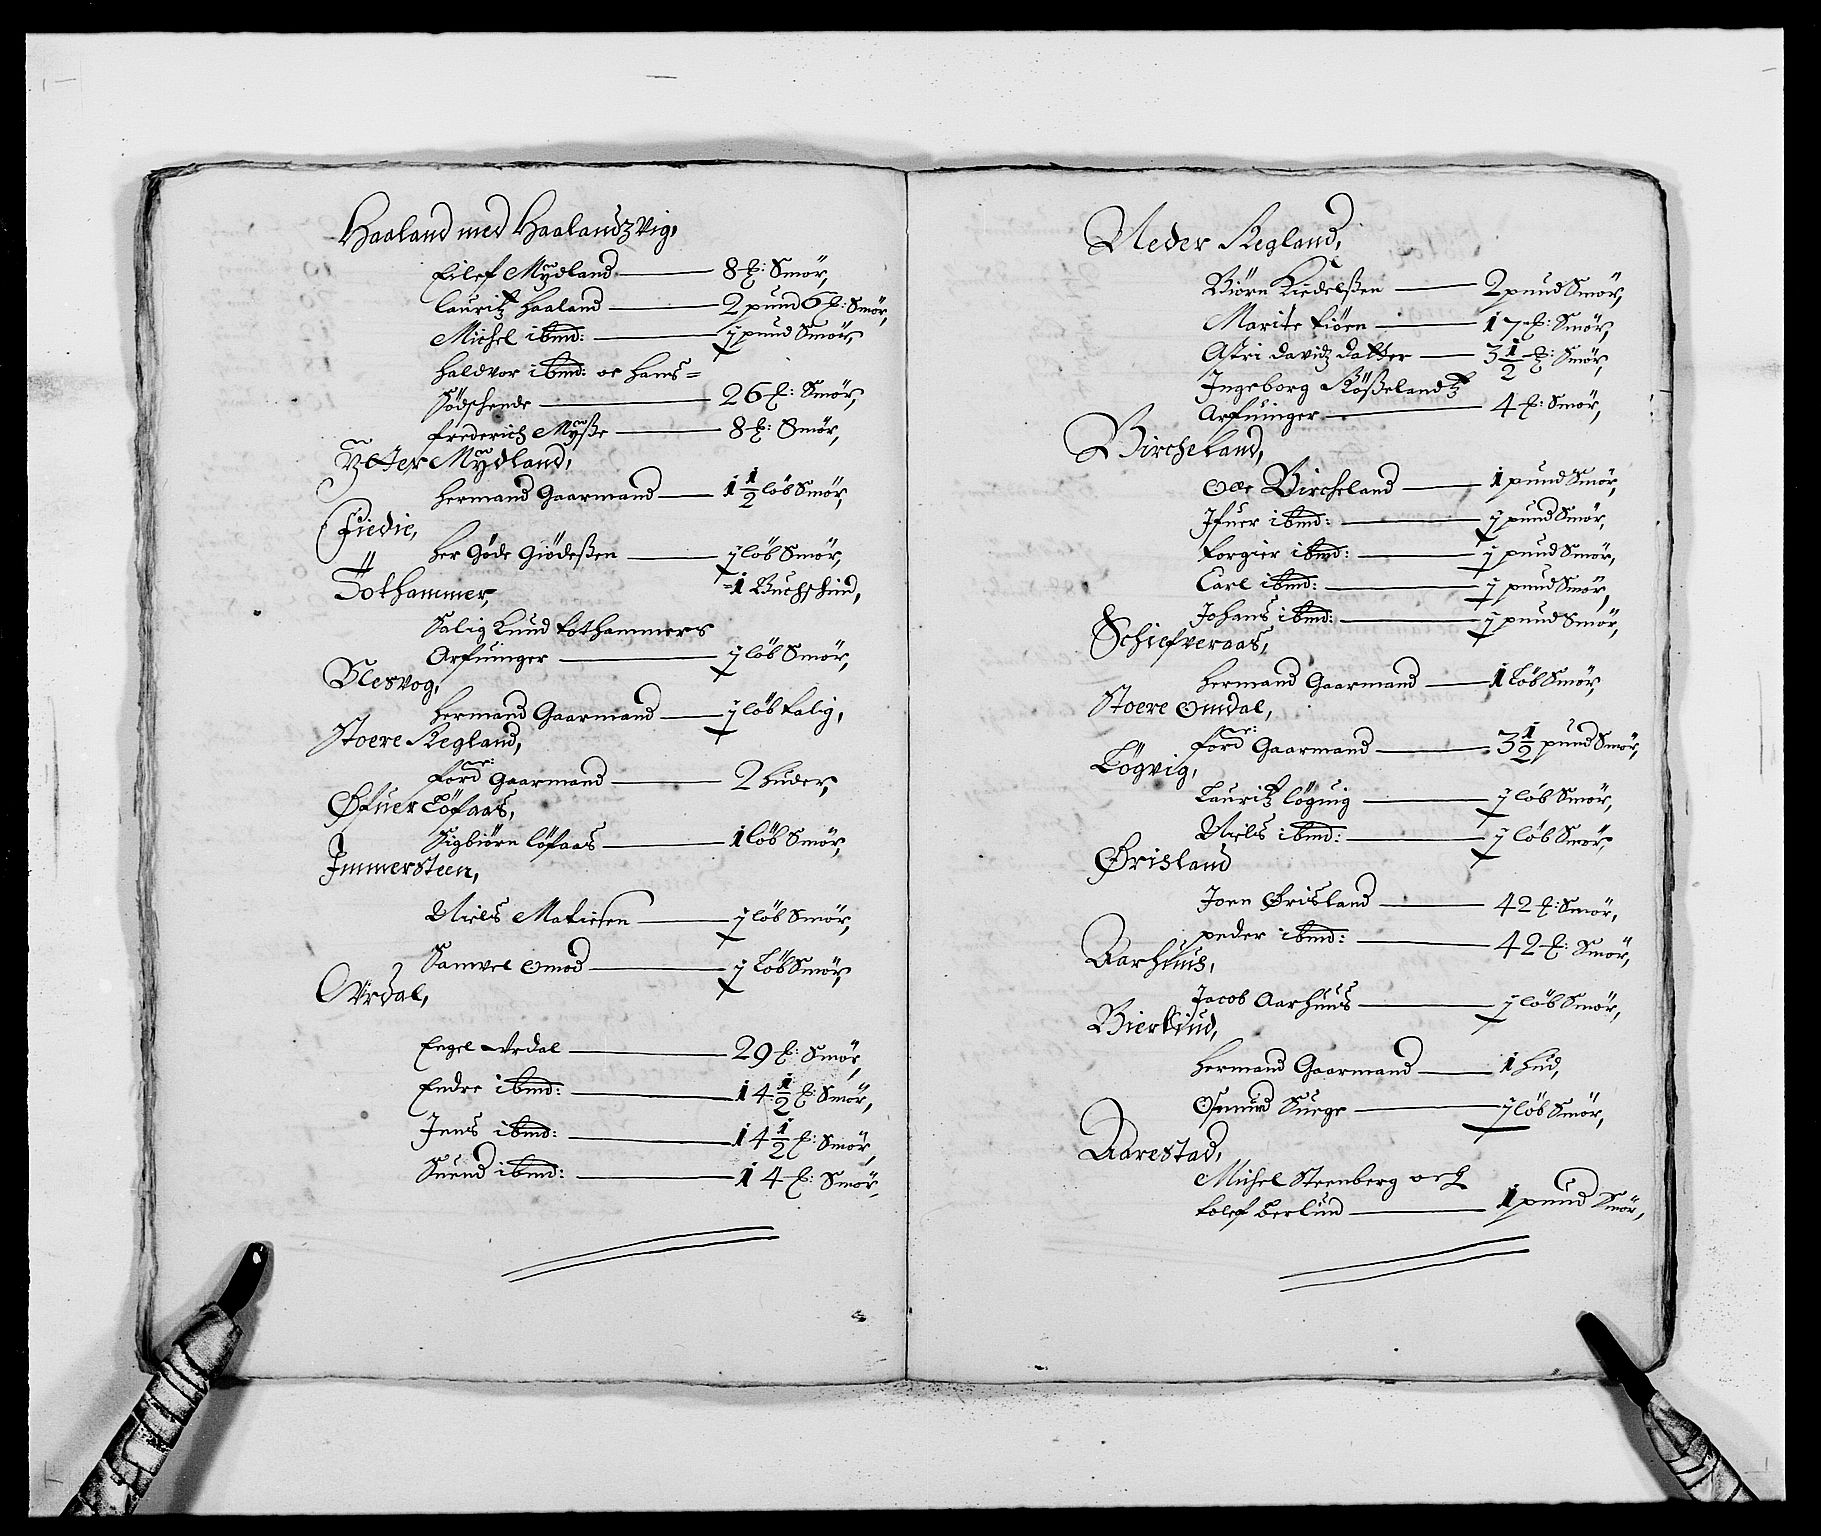 Haaland med Haalandzvig,
Eilef Mÿdland 8 ℔: Smör,
Lauritz Haaland 2 pund 6 ℔: Smör,
Michel ibmd: ½ pund Smör,
Haldvor ibmd: oc Hans=
Södschende 26 ℔: Smör,
Frederich Mÿsse 8 ℔: Smör,
Ÿtter Mÿdland,
Hermand Gaarmand 1½ löb Smör,
Fiedie,
Her Göde Giödeßen ½ löb Smör,
=1 Buchskind,
Tothammer,
Salig Knud Tothammers
Arfuinger ½ löb Smör,
Nesvog,
Hermand Gaarmand ½ löb talig,
Stoere Regland,
Ford Gaarmand 2 huder,
Øfuer Löfaas,
Sigbiörn Löfaas 1 löb Smör,
Immersteen,
Niels Matiesen ½ löb Smör,
Samvel Omod ½ Löb Smör,
Ørdal,
Engel Ørdal 29 ℔: Smör,
Endre ibmd: 14½ ℔: Smör,
Jens ibmd: 14½ ℔: Smör,
Suend ibmd: 14 ℔: Smör,
Neder Regland,
Biörn Kiedelßen 2 pund Smör,
Marite Tiörn 17 ℔: Smör,
Astri Davidz datter 3½ ℔: Smör,
Ingeborg Rößelandtz
Arfuinger 4 ℔: Smör,
Bircheland,
Olle Bircheland 1 pund Smör,
Ifuer ibmd: ½ pund Smör,
Torgier ibmd: ½ pund Smör,
Carl ibmd: ½ pund Smör,
Johans ibmd: ½ pund Smör,
Schiefveraas,
Hermand Gaarmand 1 Löb Smör,
Stoere Omdal,
Ford Gaarmand 3½ pund Smör,
Lögvig,
Lauritz Löguig ½ löb Smör,
Niels ibmd: ½ löb Smör,
Ørisland
Joen Ørisland 42 ℔: Smör,
Peder ibmd: 42 ℔: Smör,
Aarhuus,
Jacob Aarhuus ½ löb Smör,
Bierkind,
Hermand Gaarmand 1 hud,
Osmund Suege ½ löb Smör,
Aarestad,
Michel Steenberg och
Tolef Berlund 1 pund Smör,